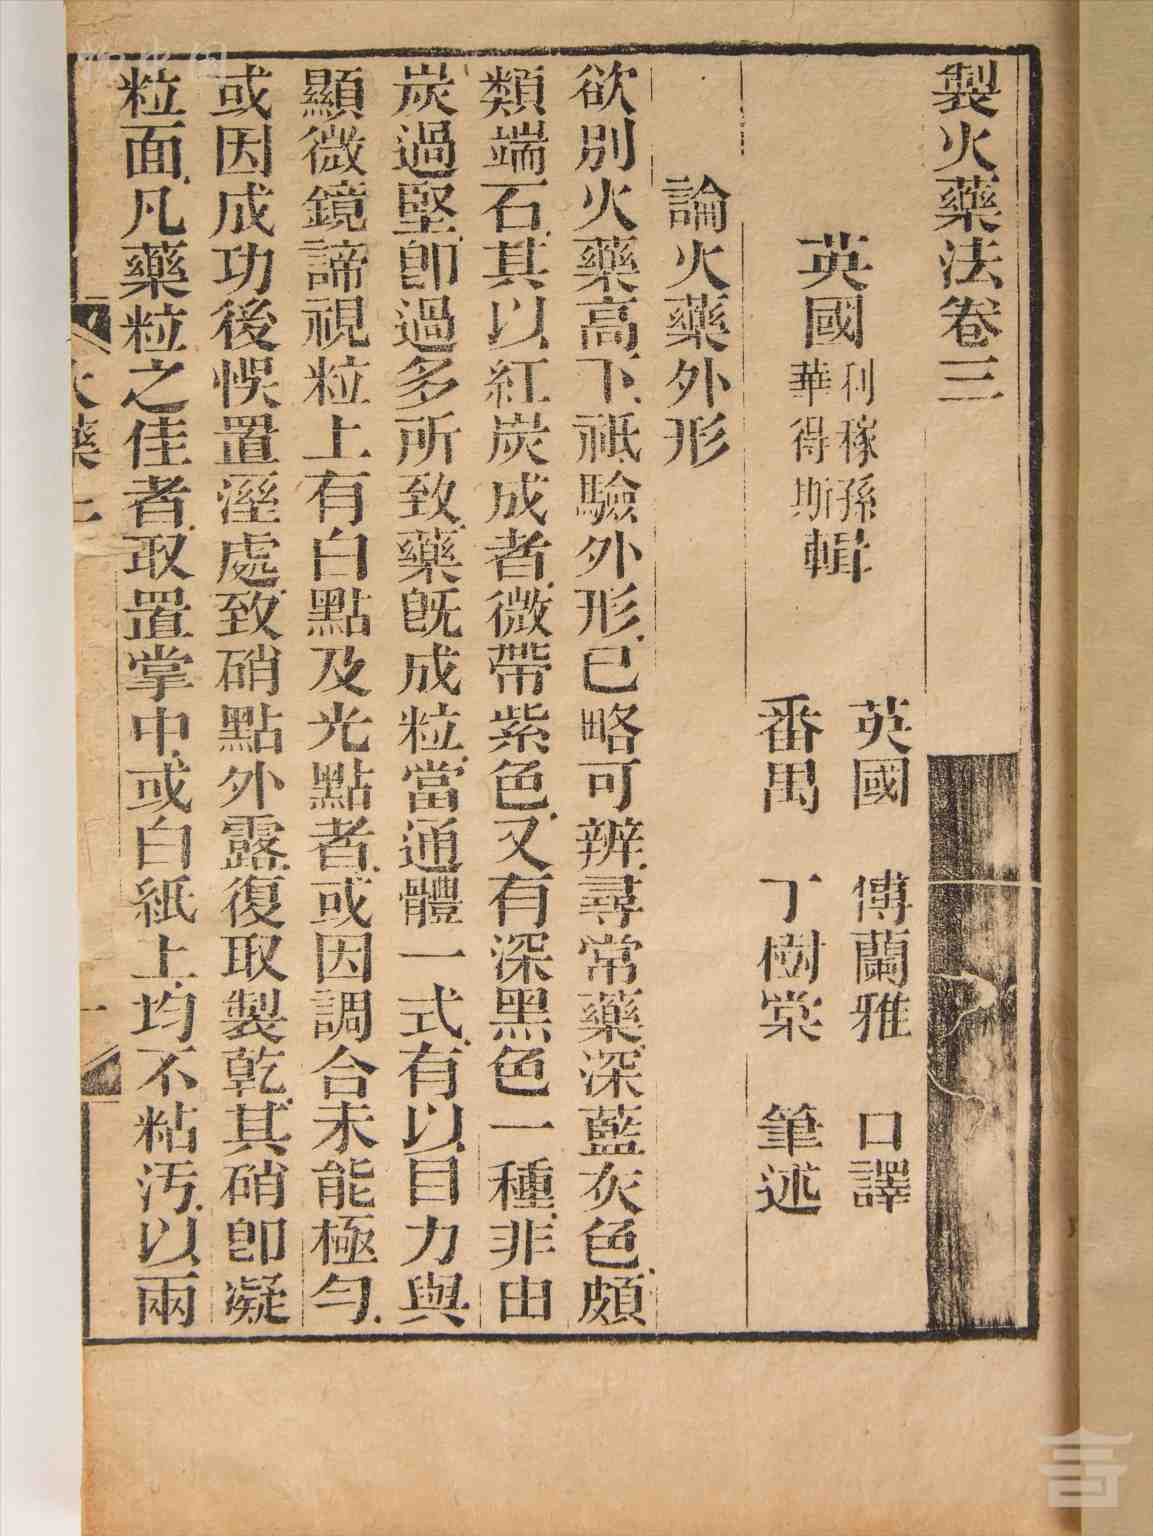 製火藥法卷三
英國 利稼孫 華得斯 輯
英國 傅蘭雅 口譯
番禺 丁樹棠 筆述
論火藥外形
欲別火藥高下、祇驗外形、已略可辨、尋常藥、深藍灰色、頗
類端石、其以紅炭成者、微帶紫色、又有深黑色一種、非由
炭過堅、卽過多所致、藥旣成粒、當通體一式、有以目力與
顯微鏡諦視粒上有白點及光點者、或因調合未能極勻、
或因成功後悞置溼處、致硝點外露、復取製乾、其硝卽凝
粒面、凡藥粒之佳者、取置掌中、或白紙上、均不粘汚、以兩
火藥
一